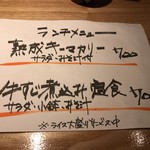 ランチメニュー
熟成キーマカリー ¥700
サラダ・お味噌汁付
牛すじ煮込み定食 ¥700
サラダ・小鉢・お味噌汁
※ライス大盛りサービス中